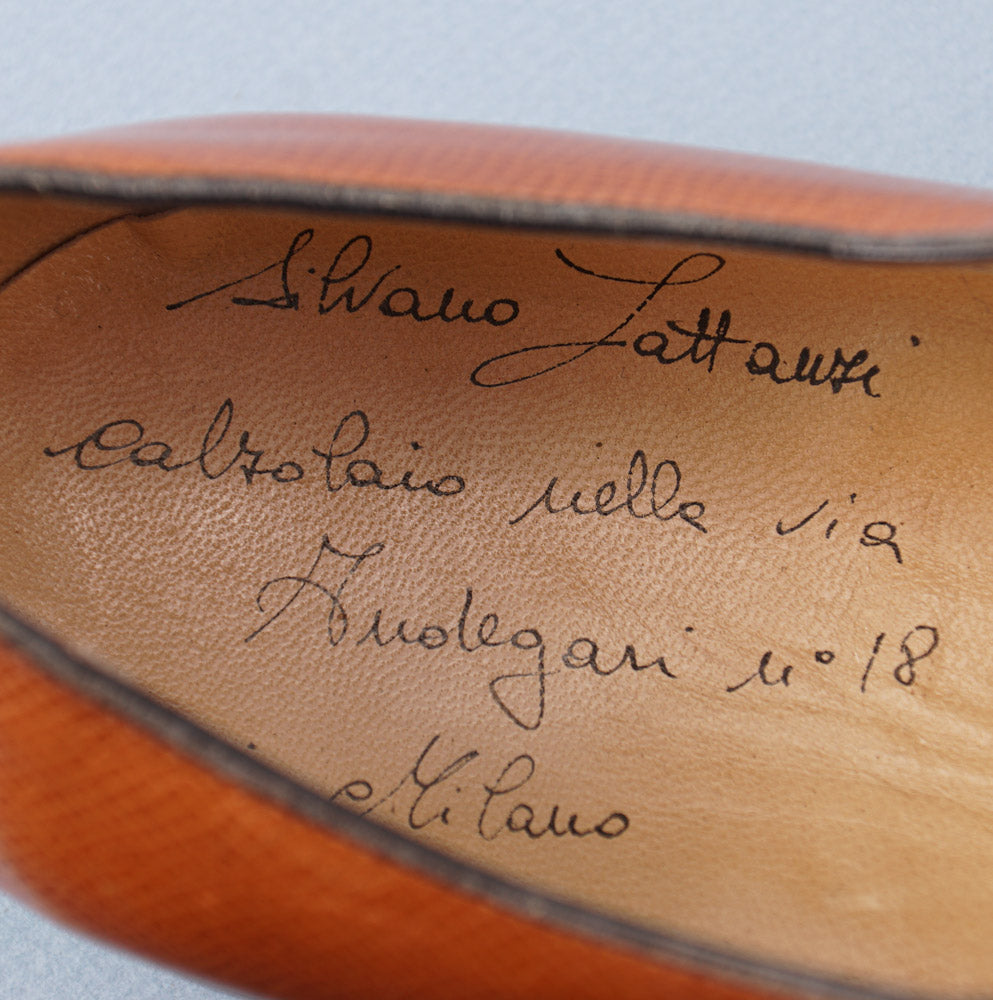 Silvano Lattanzi
calzolaio nella via
Andegari n° 18
Milano